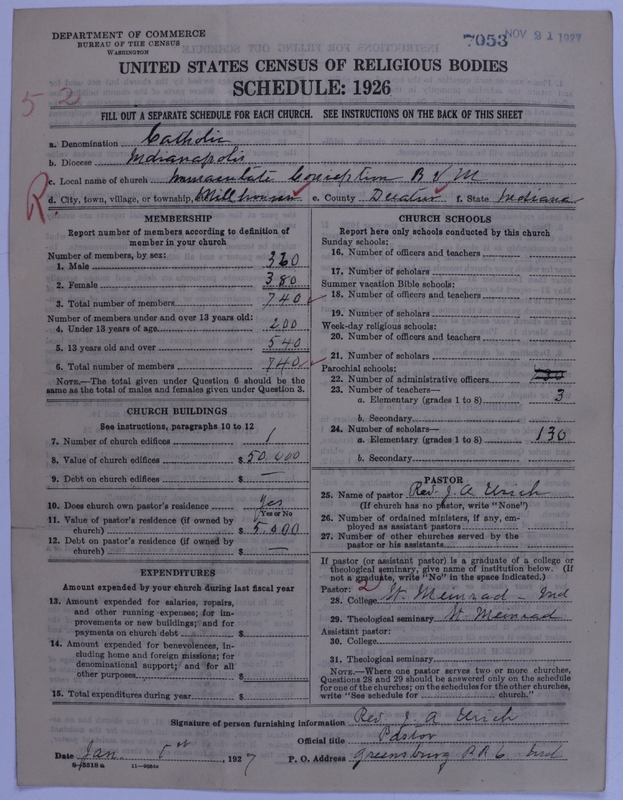 DEPARTMENT OF COMMERCE
BUREAU OF THE CENSUS
WASHINGTON
7053 NOV 21 1927
UNITED STATES CENSUS OF RELIGIOUS BODIES
SCHEDULE: 1926
52
FILL OUT A SEPARATE SCHEDULE FOR EACH CHURCH. SEE INSTRUCTIONS ON THE BACK OF THIS SHEET
a. Denomination Catholic
b. Diocese Indianapolis
c. Local name of church Immaculate Conception B V M
R
d. City, town, village, or township, Millhousen e. County Decatur f. State Indiana
MEMBERSHIP
Report number of members according to definition of member in your church
Number of members, by sex:
1. Male 360
2. Female 380
3. Total number of members 740
Number of members under and over 13 years old:
4. Under 13 years of age 200
5. 13 years old and over 540
6. Total number of members 740
NOTE.—The total given under Question 6 should be the
same as the total of males and females given under Question 3.
CHURCH BUILDINGS
See instructions, paragraphs 10 to 12
7. Number of church edifices 1
8. Value of church edifices $ 50,000
9. Debt on church edifices $ —
10. Does church own pastor's residence yes
Yes or No
11. Value of pastor's residence (if owned by
church) $ 5,000
12. Debt on pastor's residence (if owned by
church) $ —
EXPENDITURES
Amount expended by your church during last fiscal year
13. Amount expended for salaries, repairs,
and other running expenses; for im-
provements or new buildings; and for
payments on church debt $
14. Amount expended for benevolences, in-
cluding home and foreign missions; for
denominational support; and for all
other purposes $
15. Total expenditures during year $
CHURCH SCHOOLS
Report here only schools conducted by this church
Sunday schools:
16. Number of officers and teachers
17. Number of scholars
Summer vacation Bible schools:
18. Number of officers and teachers
19. Number of scholars
Week-day religious schools:
20. Number of officers and teachers
21. Number of scholars
Parochial schools:
22. Number of administrative officers
23. Number of teachers—
a. Elementary (grades 1 to 8) 3
b. Secondary
24. Number of scholars—
a. Elementary (grades 1 to 8) 130
b. Secondary
PASTOR
25. Name of pastor Rev. J. A. Urich
(If church has no pastor, write "None")
26. Number of ordained ministers, if any, em-
ployed as assistant pastors
27. Number of other churches served by the
pastor or his assistants
If pastor (or assistant pastor) is a graduate of a college or
theological seminary, give name of institution below. (If
not a graduate, write "No" in the space indicated.)
Pastor: 2
28. College St. Meinrad - Ind
29. Theological seminary St. Meinrad
Assistant pastor:
30. College
31. Theological seminary
NOTE.—Where one pastor serves two or more churches,
Questions 28 and 29 should be answered only on the schedule
for one of the churches; on the schedules for the other churches,
write "See schedule for church."
Signature of person furnishing information Rev. J. A. Urich
Official title Pastor
Date Jan. 5th, 1927 P. O. Address Greensburg RR 6 Ind